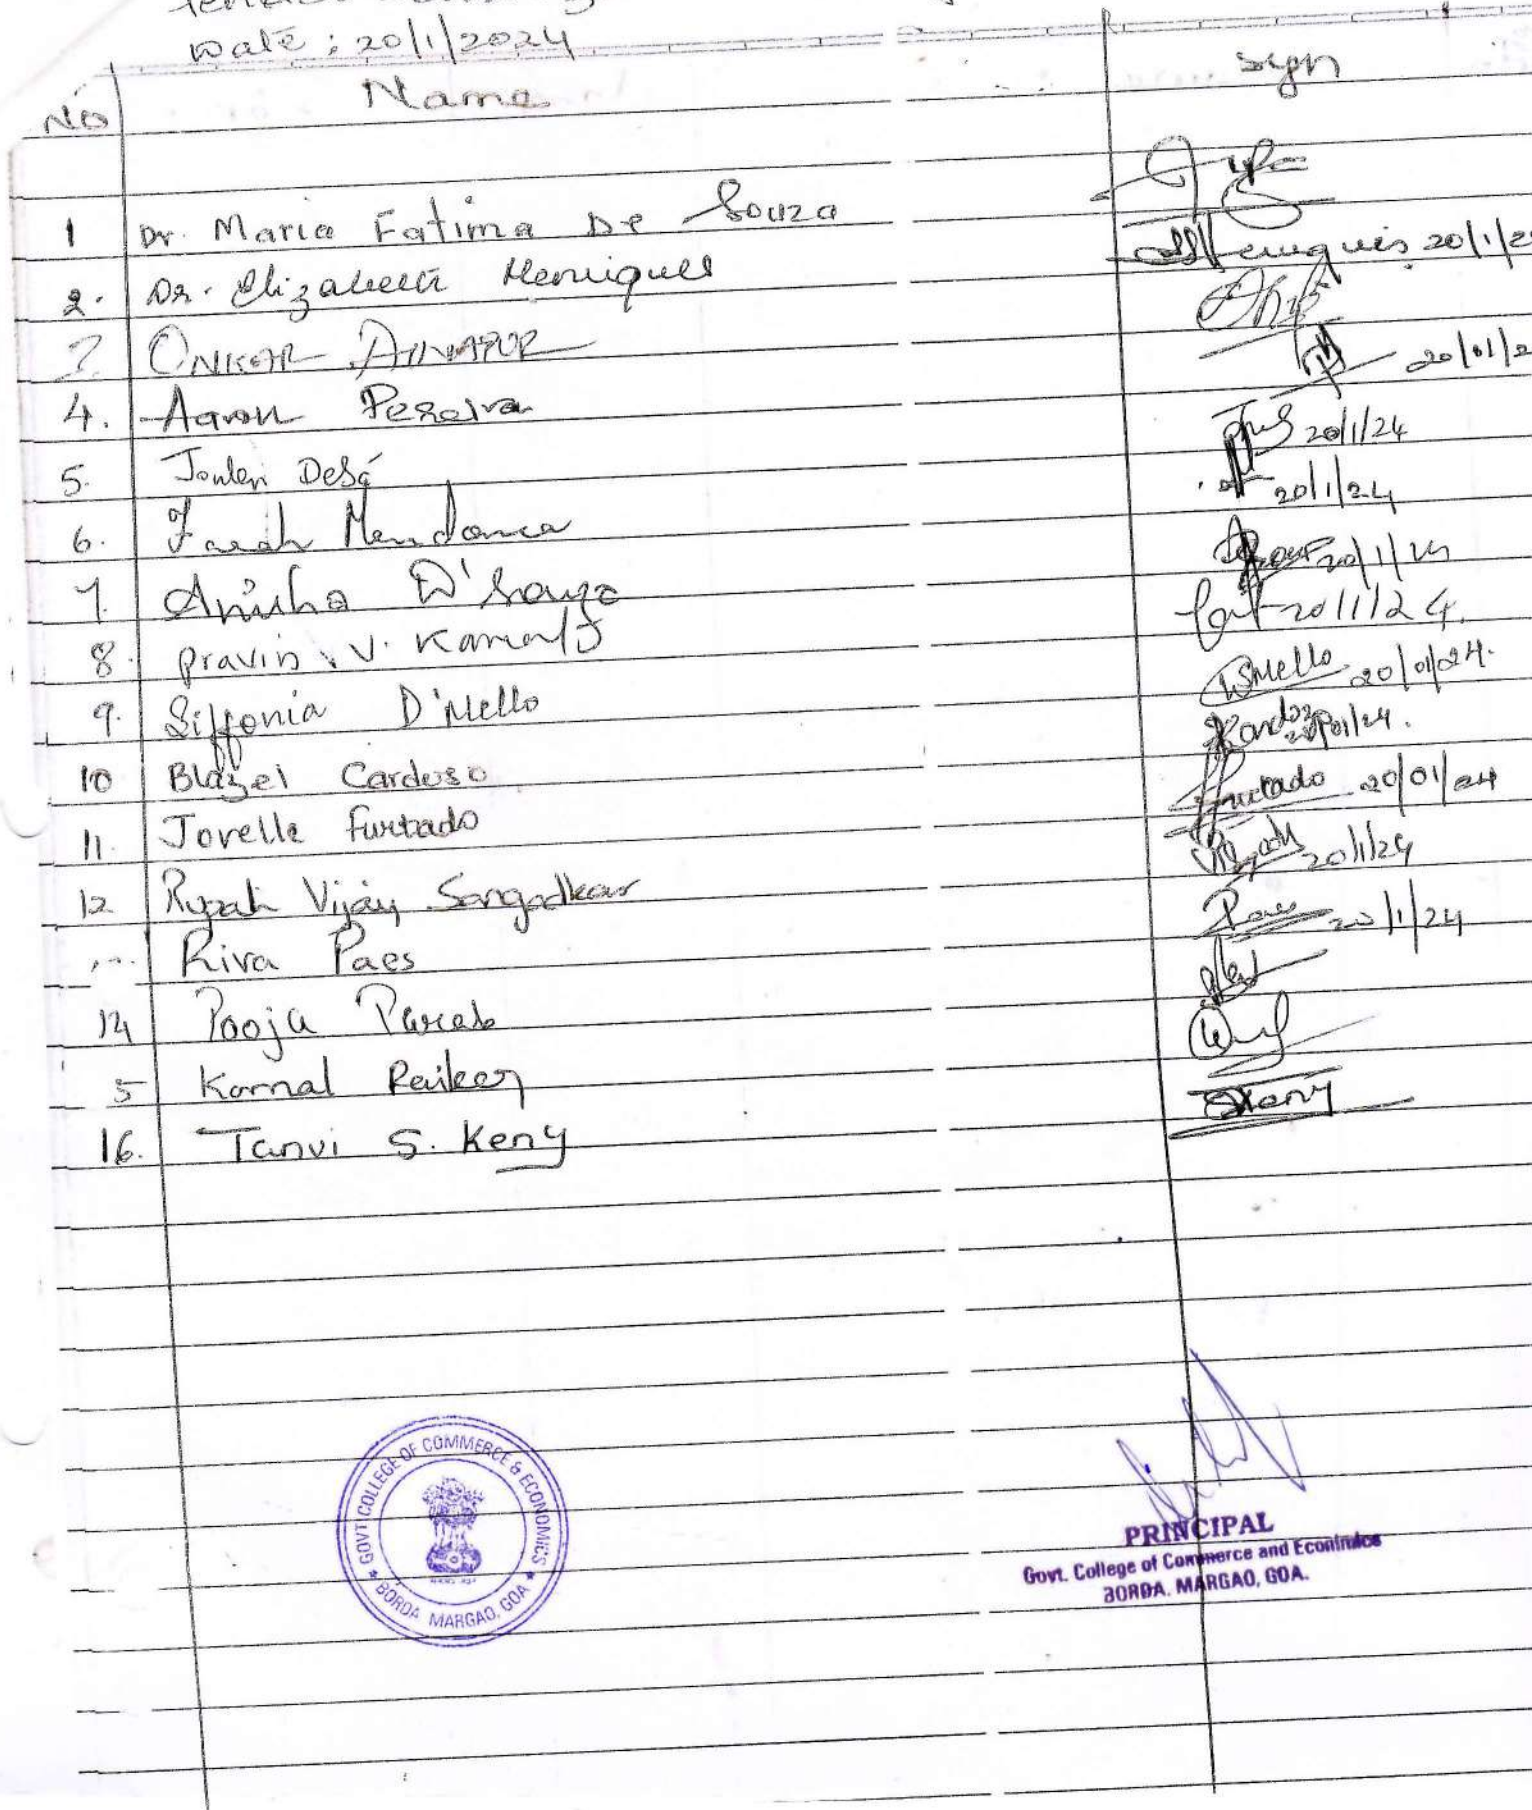 Date : 20/1/2024
No Name Sign
1 Dr. Maria Fatima De Souza
2. Dr. Elizabeth Henriques 20/1/2
3 ONKAR AINAPUR
4. Aaron Pereira 20/01/2
5. DeSá 20/1/24
6. Farah Mendonca 20/1/24
7. D'Souza 20/1/24
8. Pravin . V. 20/1/24.
9. Siffonia D'Mello DSMello 20/01/24.
10 Blazel Cardoso 20/01/24.
11. Jovelle Furtado Furtado 20/01/24
12 Vijay Sangodkar 20/1/24
Riva Paes Paes 20/1/24
14 Pooja Parab
5 Komal Raiker
16. Tanvi S. Keny Keny
GOVT. COLLEGE OF COMMERCE & ECONOMICS
* BORDA MARGAO, GOA *
PRINCIPAL
Govt. College of Commerce and Econimics
BORDA. MARGAO, GOA.